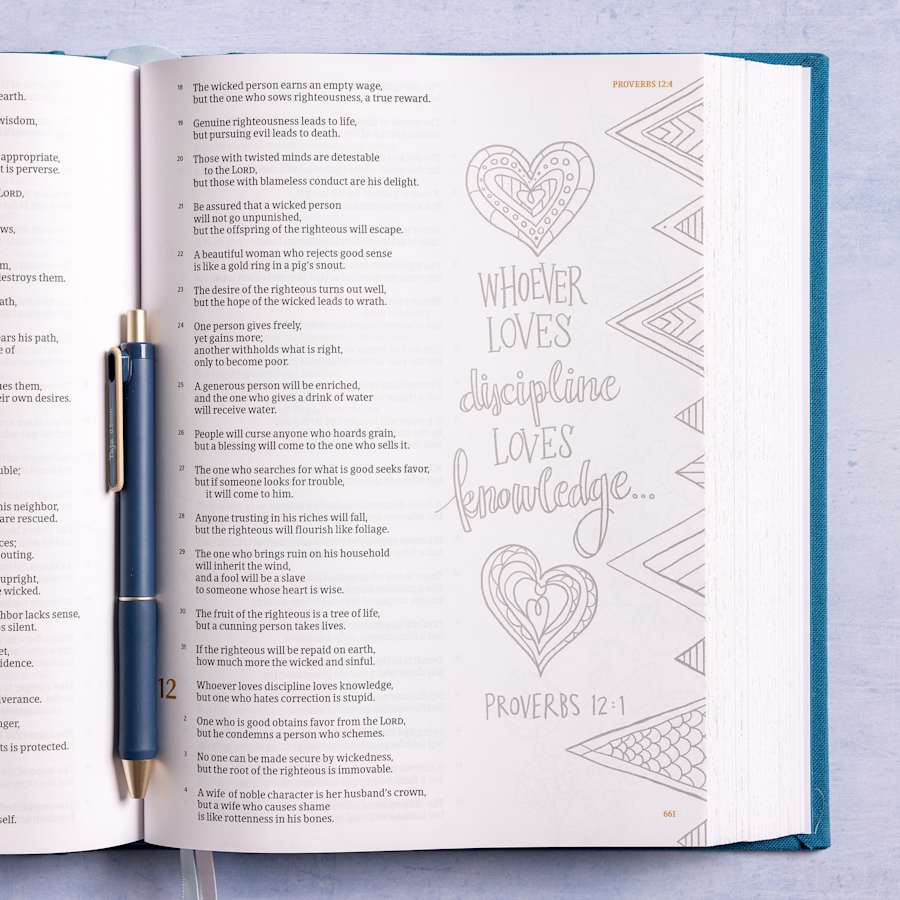 earth.
wisdom,
appropriate,
t is perverse.
LORD,
ws,
m,
estroys them.
ath,
ears his path,
e of
ues them,
eir own desires.
uble;
his neighbor,
are rescued.
ces;
outing.
upright,
e wicked.
hbor lacks sense,
s silent.
et,
idence.
verance.
nger,
ts is protected.
self.
PROVERBS 12:4
18 The wicked person earns an empty wage,
but the one who sows righteousness, a true reward.
19 Genuine righteousness leads to life,
but pursuing evil leads to death.
20 Those with twisted minds are detestable
to the LORD,
but those with blameless conduct are his delight.
21 Be assured that a wicked person
will not go unpunished,
but the offspring of the righteous will escape.
22 A beautiful woman who rejects good sense
is like a gold ring in a pig's snout.
23 The desire of the righteous turns out well,
but the hope of the wicked leads to wrath.
24 One person gives freely,
yet gains more;
another withholds what is right,
only to become poor.
25 A generous person will be enriched,
and the one who gives a drink of water
will receive water.
26 People will curse anyone who hoards grain,
but a blessing will come to the one who sells it.
27 The one who searches for what is good seeks favor,
but if someone looks for trouble,
it will come to him.
28 Anyone trusting in his riches will fall,
but the righteous will flourish like foliage.
29 The one who brings ruin on his household
will inherit the wind,
and a fool will be a slave
to someone whose heart is wise.
30 The fruit of the righteous is a tree of life,
but a cunning person takes lives.
31 If the righteous will be repaid on earth,
how much more the wicked and sinful.
12 Whoever loves discipline loves knowledge,
but one who hates correction is stupid.
2 One who is good obtains favor from the LORD,
but he condemns a person who schemes.
3 No one can be made secure by wickedness,
but the root of the righteous is immovable.
4 A wife of noble character is her husband's crown,
but a wife who causes shame
is like rottenness in his bones.
WHOEVER
LOVES
discipline
LOVES
knowledge...
PROVERBS 12:1
661